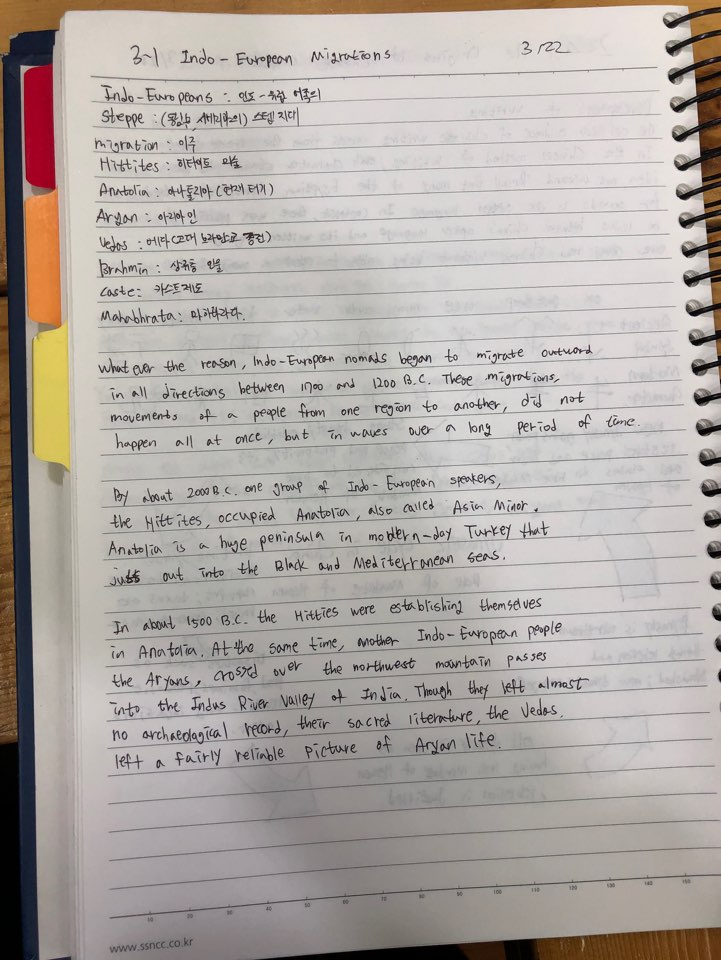 3-1 Indo-European Migrations 3/22
Indo-Europeans : 인도-유럽 어족의
Steppe : (동남부, 시베리아의) 스텝 지대
migration : 이주
Hittites : 히타이트 만술
Anatolia : 아나톨리아 (현재 터키)
Aryan : 아리아인
Vedas : 베다 (고대 브라만교 경전)
Brahmin : 상류층 인물
caste : 카스트제도
Mahabhrata : 마하바라다.
What ever the reason, Indo-European nomads began to migrate outward
in all directions between 1700 and 1200 B.C. These migrations,
movements of a people from one region to another, did not
happen all at once, but in waves over a long period of time.
By about 2000 B.C. one group of Indo-European speakers,
the Hittites, occupied Anatolia, also called Asia Minor.
Anatolia is a huge peninsula in modern-day Turkey that
juts out into the Black and Mediterranean seas.
In about 1500 B.C. the Hitties were establishing themselves
in Anatolia. At the same time, another Indo-European people
the Aryans, crossed over the northwest mountain passes
into the Indus River Valley of India. Though they left almost
no archaeological record, their sacred literature, the Vedas.
left a fairly reliable picture of Aryan life.
10 20 30 40 50 60 70 80 90 100 110 120 130 140 150
www.ssncc.co.kr